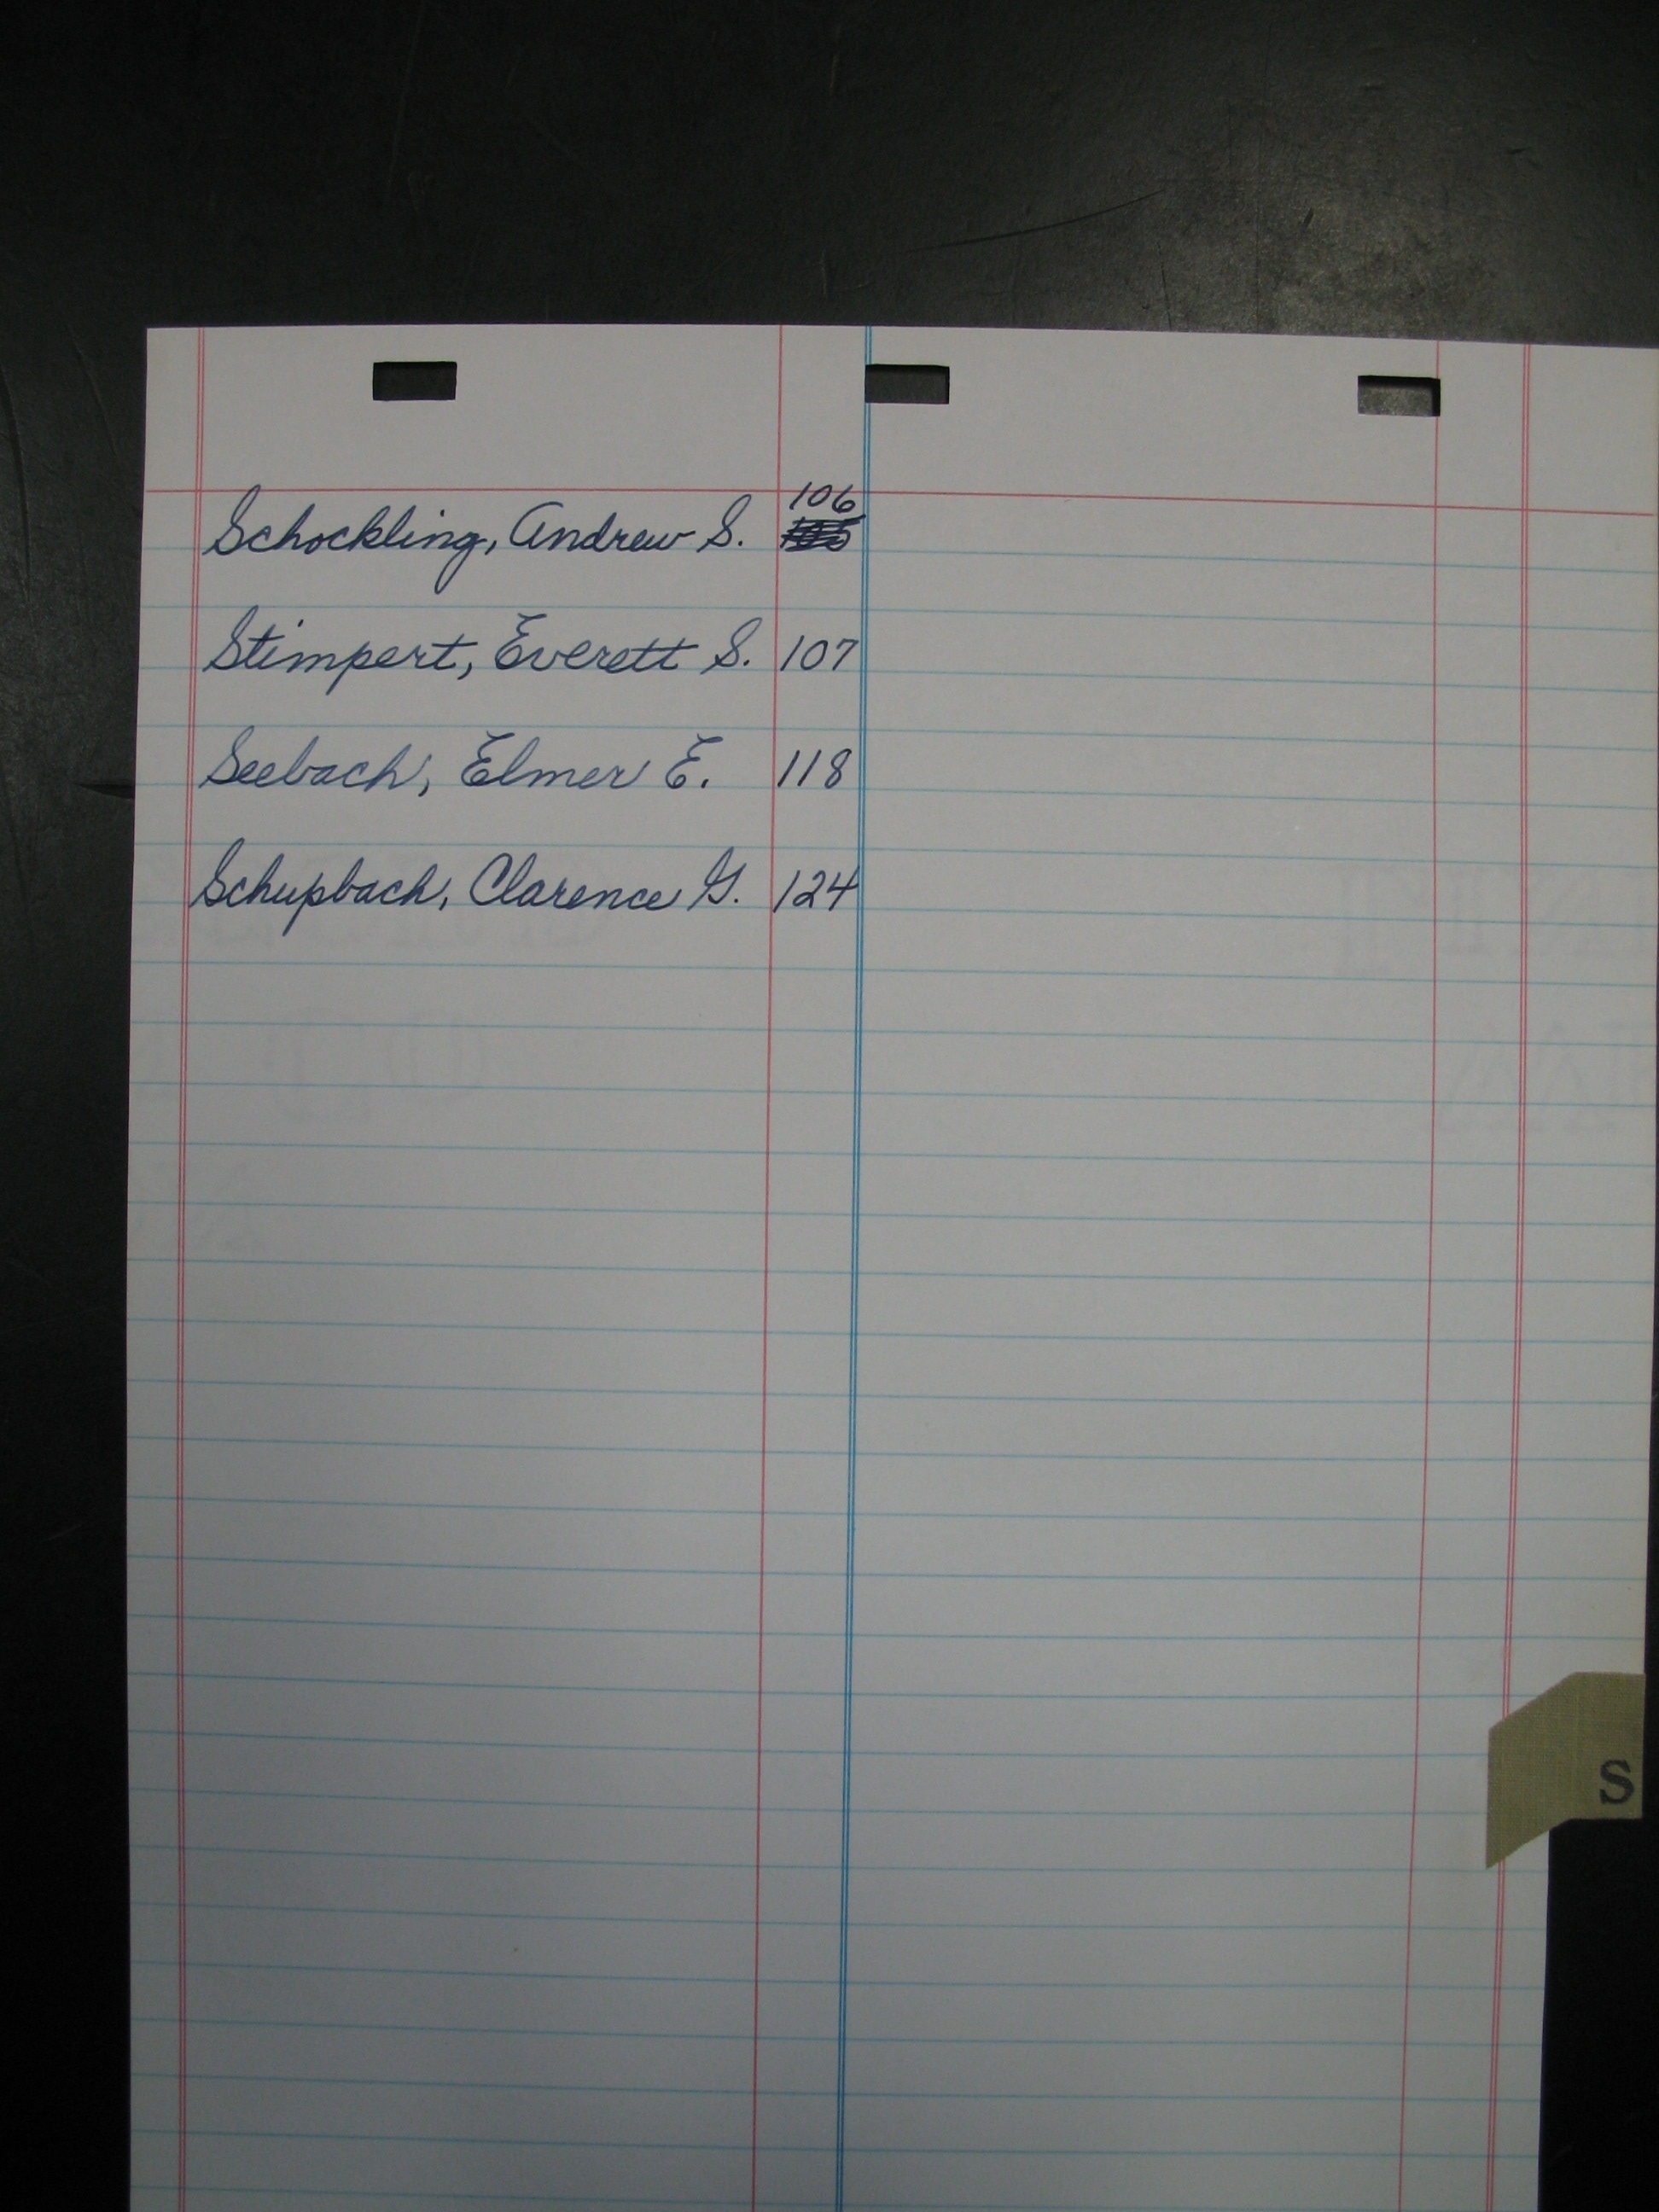 106
Schockling, Andrew S.
Stimpert, Everett S. 107
Seebach, Elmer E. 118
Schupbach, Clarence G. 124
S